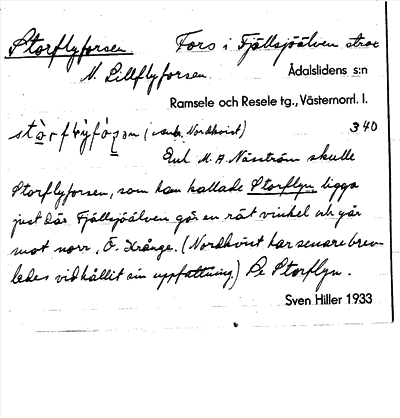 Storflyforsen Fors i Fjällsjöälven strax
N. Lillflyforsen.
Ådalslidens s:n
Ramsele och Resele tg., Västernorrl. l.
340
(enl. Nordkvist)
Enl M. A. Näsström skulle
Storflyforsen, som han kallade Storflyn, ligga
just där Fjällsjöälven gör en rät vinkel och går
mot norr, Ö. Krånge. (Nordkvist har senare brev-
ledes vidhållit sin uppfattning) Se Storflyn.
Sven Hiller 1933